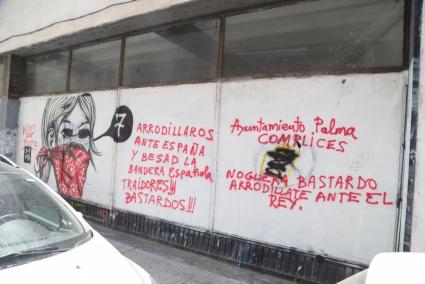 HIJOS
DE
PUTA
7
ARRODILLAROS
ANTE ESPAÑA
Y BESAD LA
BANDERA Española
TRAIDORES!!!
BASTARDOS!!!
Ayuntamiento Palma
COMPLICES
NOGUERA BASTARDO
ARRODILLATE ANTE EL
REY.